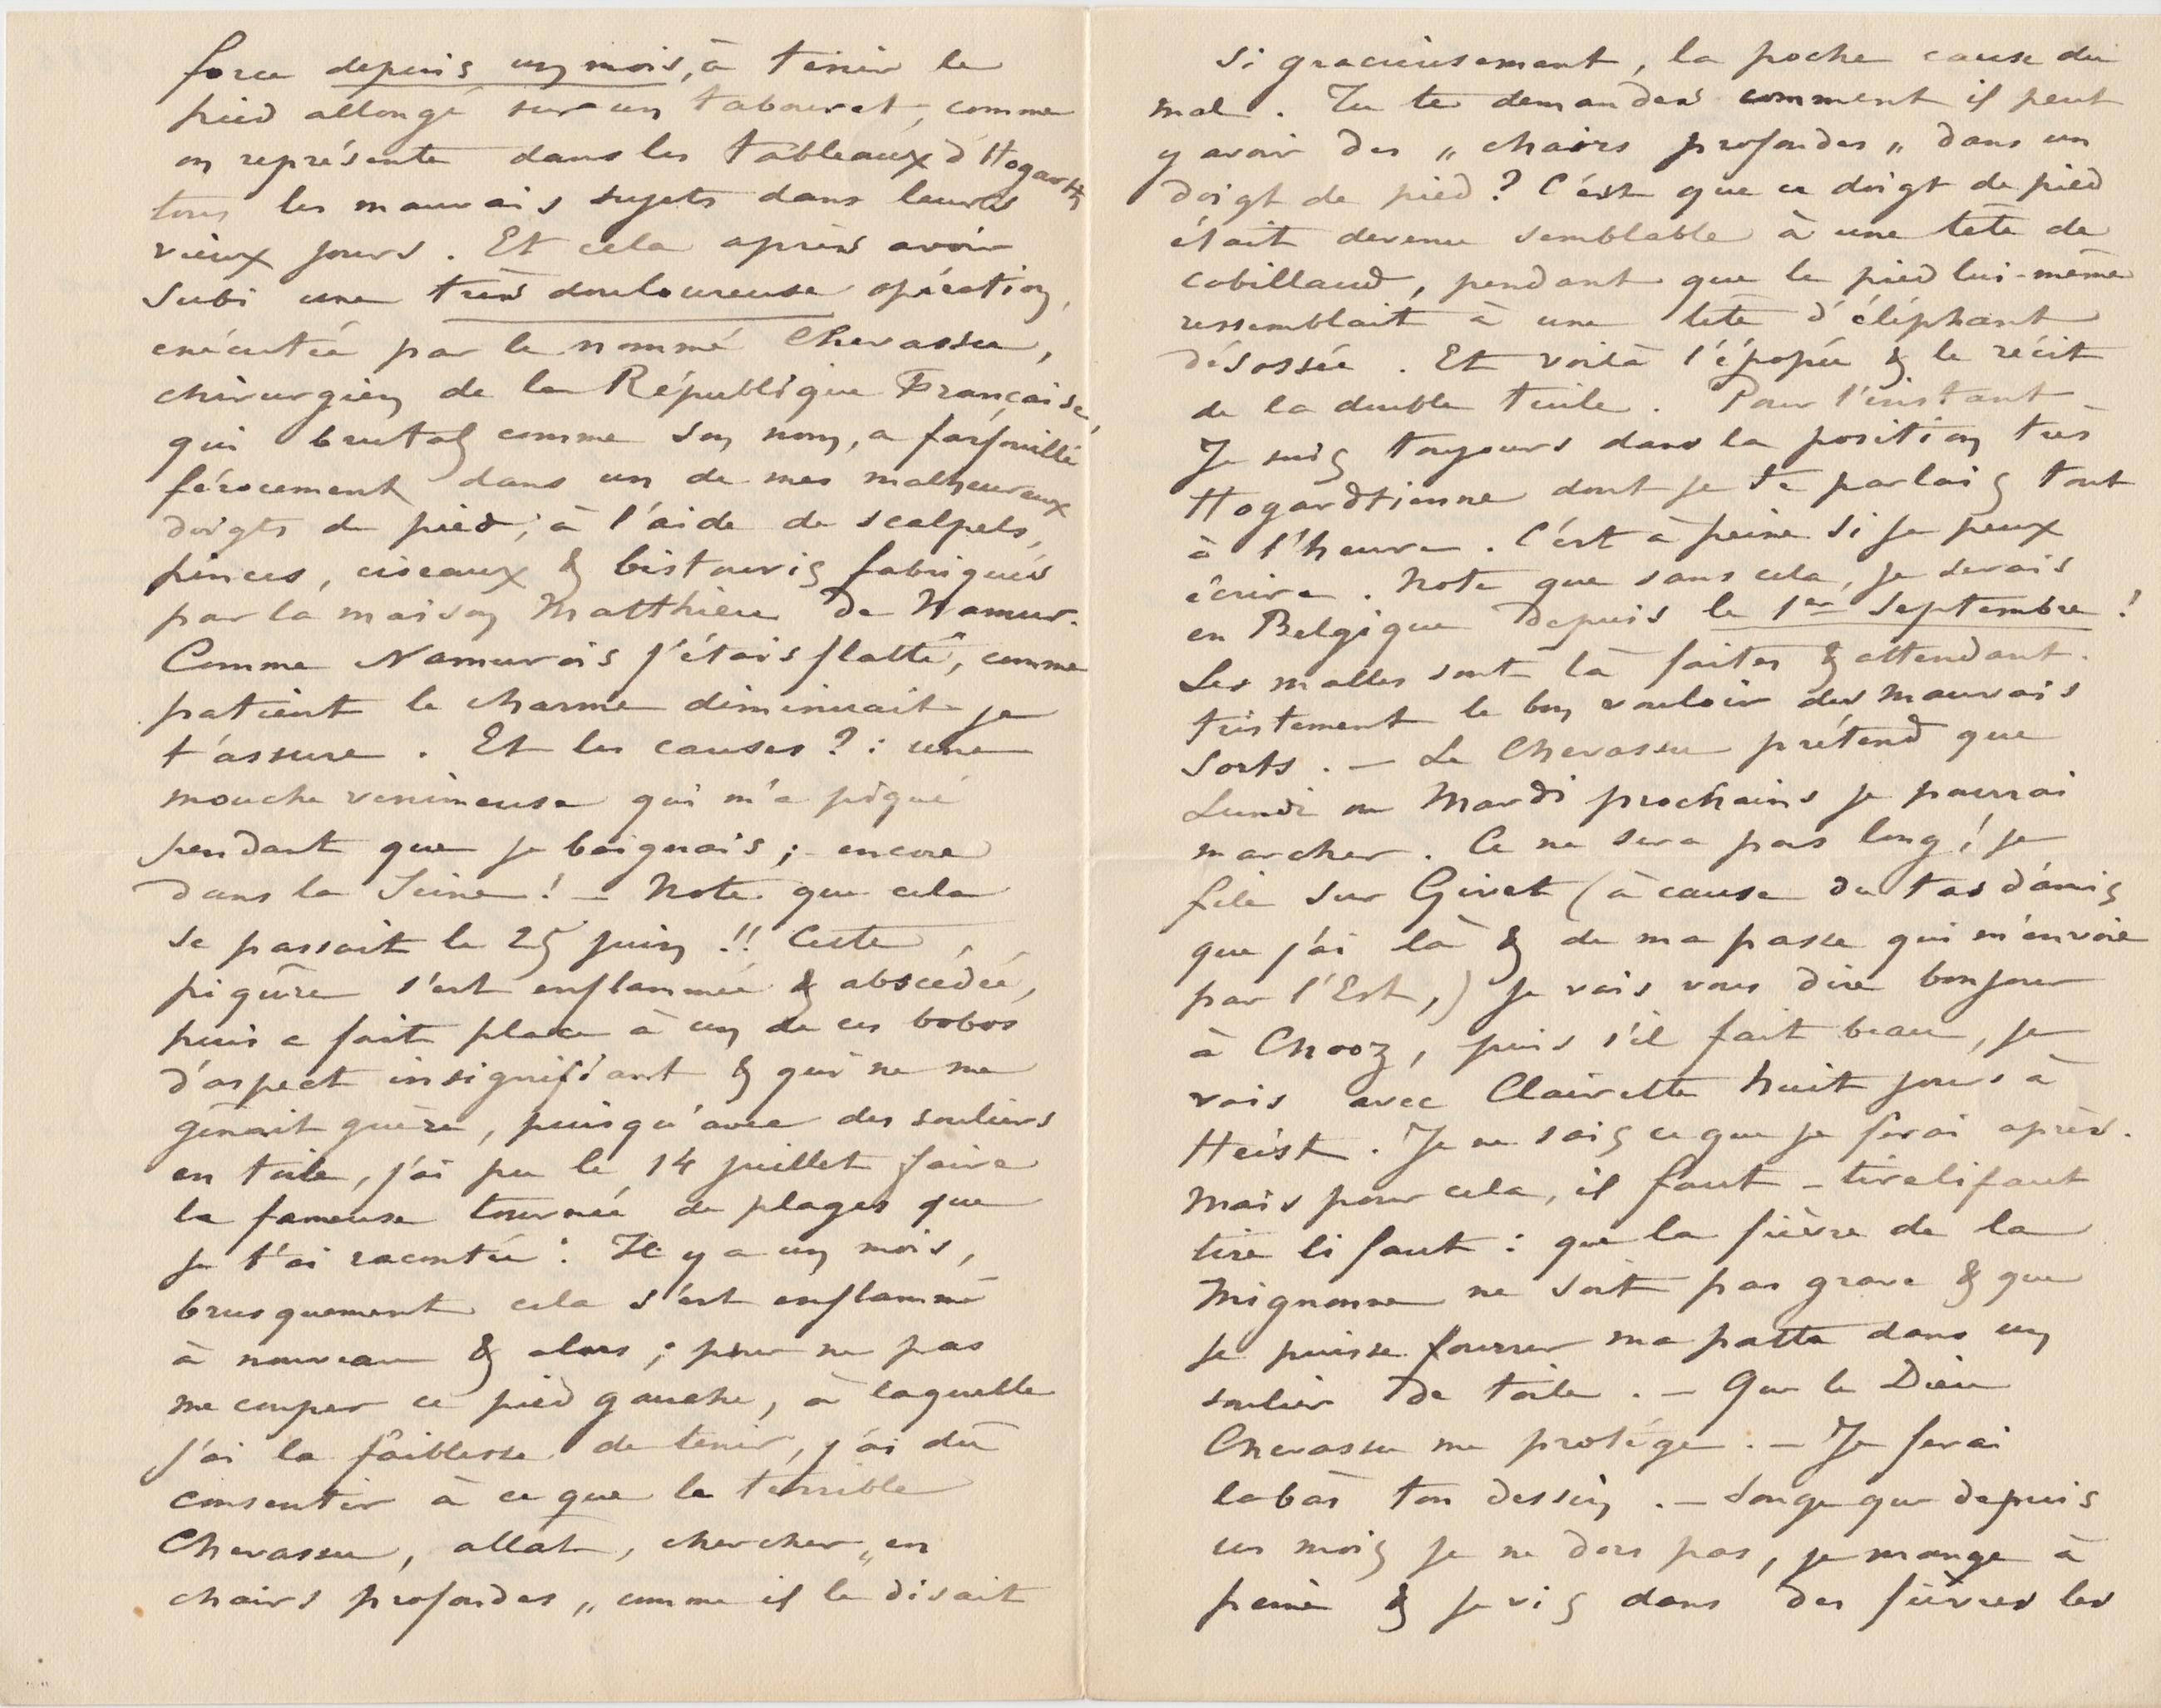 force depuis un mois, à tenir le
pied allongé sur un tabouret, comme
on représente dans les tableaux d'Hogarth
tous les mauvais sujets dans leurs
vieux jours. Et cela après avoir
subi une très douloureuse opération,
exécutée par le nommé Chevassu,
chirurgien de la République Française,
qui brutal comme son nom, a farfouillé
férocement dans un de mes malheureux
doigts de pied; à l'aide de scalpels,
pinces, ciseaux & bistouris fabriqués
par la maison Matthieu de Namur.
Comme Namurois j'étais flatté, comme
patient le charme diminuait je
t'assure. Et les causes? : une
mouche venimeuse qui m'a piqué
pendant que je baignais; encore
dans la Seine! — Note que cela
se passait le 25 juin!! Cette
piqûre s'est enflammée & abscédée,
puis a fait place à un de ces bobos
d'aspect insignifiant & qui ne me
gênait guère, puisqu'avec des souliers
en toile, j'ai pu le 14 juillet faire
la fameuse tournée de plages que
je t'ai racontée. Il y a un mois,
brusquement cela s'est enflammé
à nouveau & alors; pour ne pas
me couper ce pied gauche, à laquelle
j'ai la faiblesse de tenir, j'ai dû
consentir à ce que le terrible
Chevassu, allat, chercher „en
chairs profondes„ comme il le disait
si gracieusement, la poche cause du
mal. Tu te demandes comment il peut
y avoir des „chairs profondes„ dans un
doigt de pied? C'est que ce doigt de pied
était devenu semblable à une tête de
cabillaud, pendant que le pied lui-même
ressemblait à une tête d'éléphant
désossée. Et voilà l'épopée & le récit
de la double tuile. Pour l'instant —
Je suis toujours dans la position très
Hogardtienne dont je te parlais tout
à l'heure. C'est à peine si je peux
écrire. Note que sans cela, je serais
en Belgique depuis le 1er Septembre!
Les malles sont là faites & attendant
tristement le bon vouloir des mauvais
sorts. — Le Chevassu prétend que
Lundi ou Mardi prochains je pourrai
marcher. Ce ne sera pas long! je
file sur Givet (à cause du tas d'amis
que j'ai là & de ma passe qui m'envoie
par l'Est,) je vais vous dire bonjour
à Chooz, puis s'il fait beau, je
vais avec Clairette huit jours à
Heist. Je ne sais ce que je ferai après.
Mais pour cela, il faut — tirelifaut
tire li faut : que la fièvre de la
Mignonne ne soit pas grave & que
je puisse fourrer ma patte dans un
soulier de toile. — Que le Dieu
Chevassu me protège. — Je ferai
labàs ton dessin. — Songe que depuis
un mois je ne dors pas, je mange à
peine & je vis dans des fièvres les